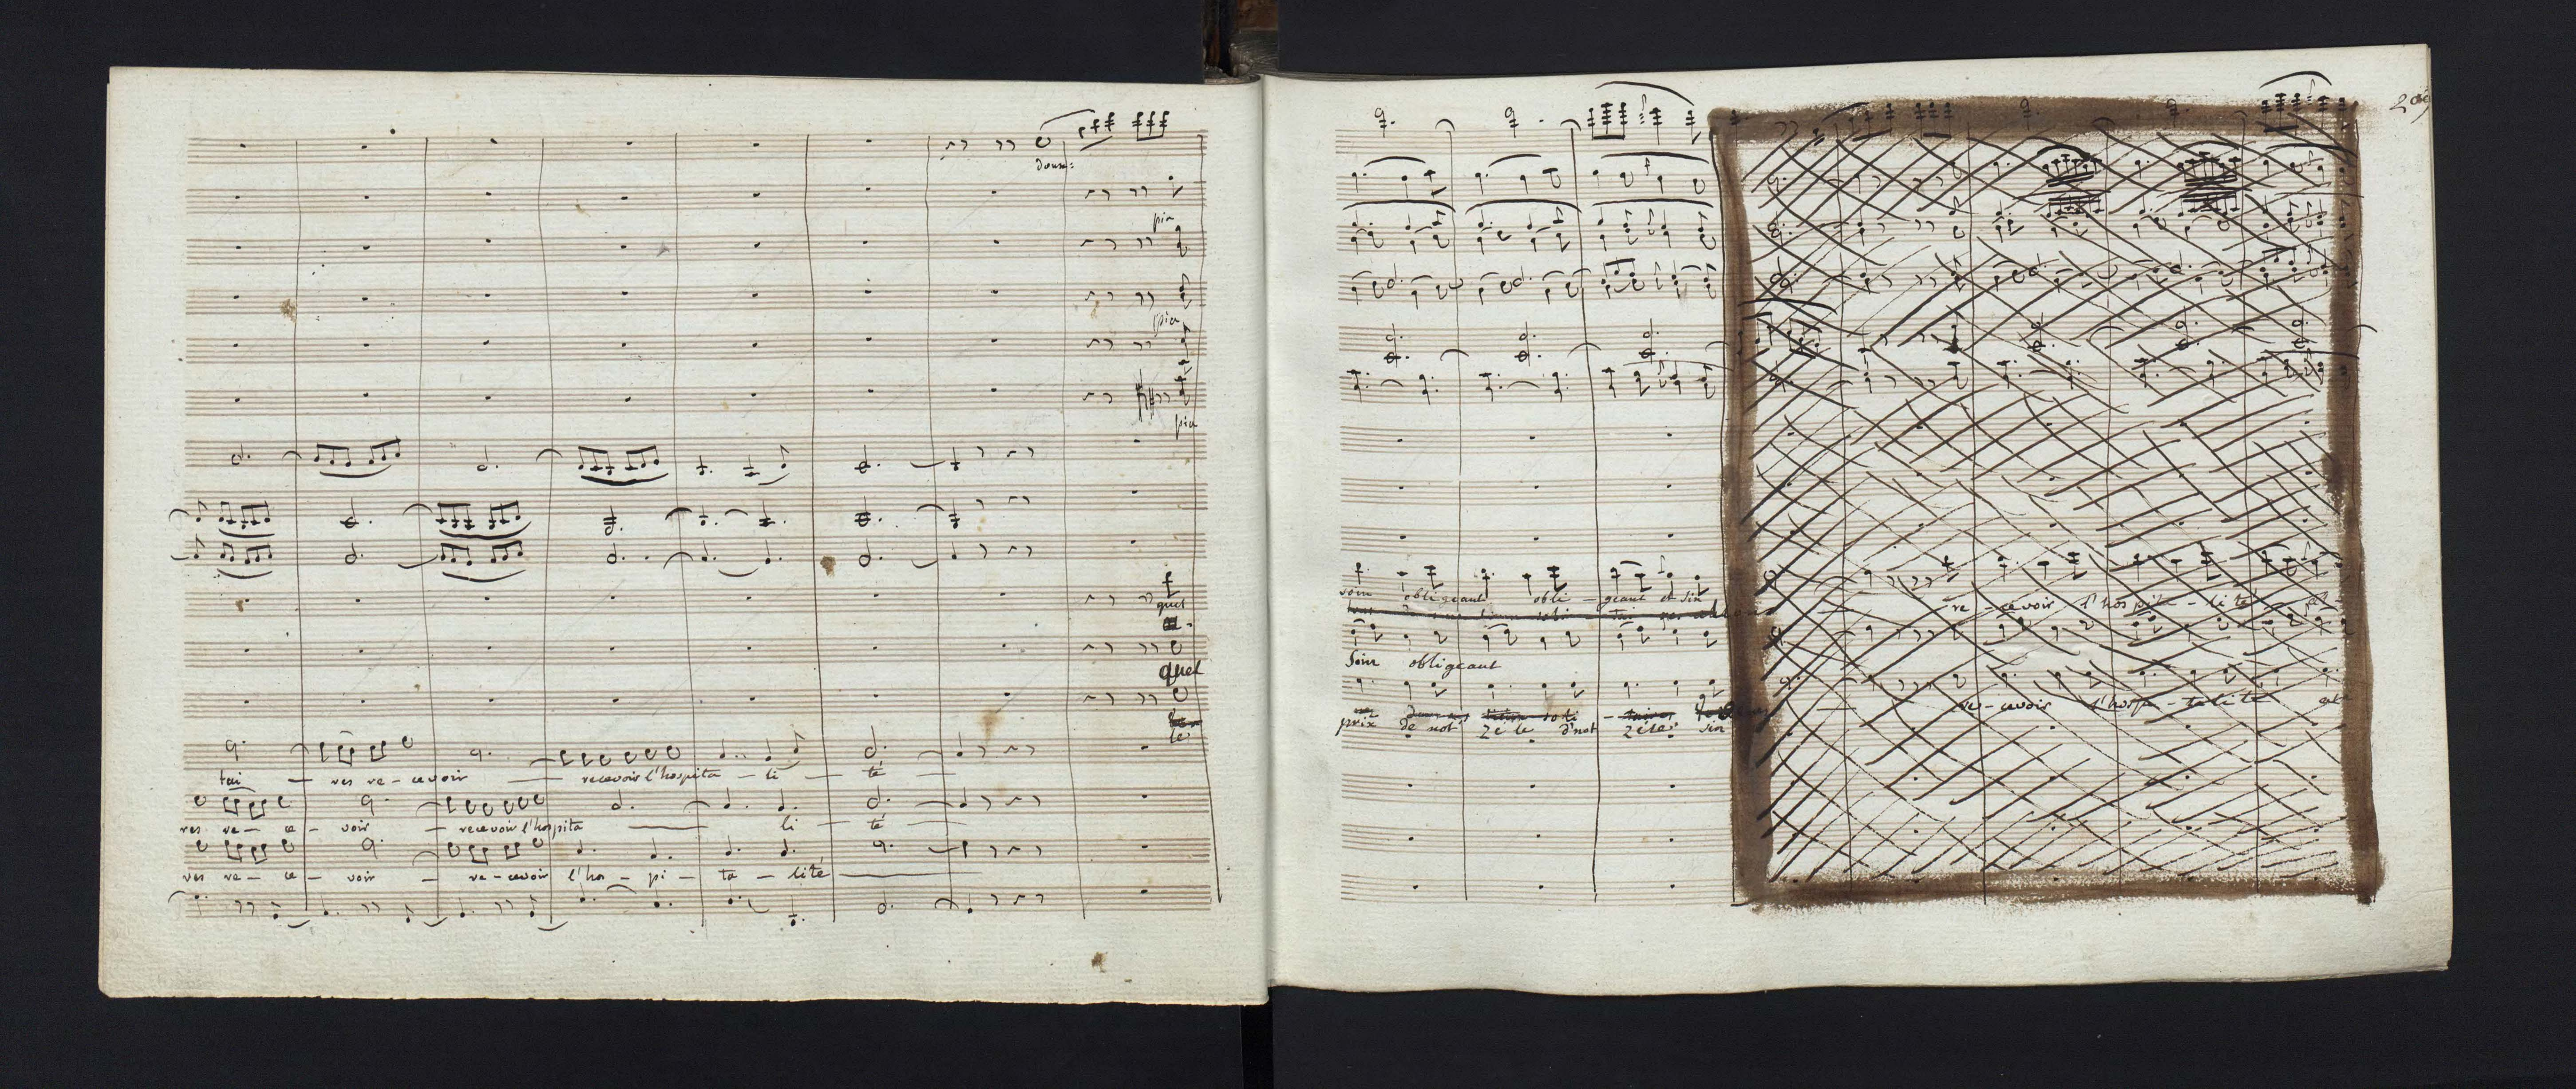 doux:
pia
pia
pia
quel
quel
le
tai — res re — cevoir — recevoir l'hospita — li — té
res re — ce — voir — recevoir l'hospita — li — té
res re — ce — voir — re — cevoir l'hos — pi — ta — lité
209
soin obligeant obli — geant et sin
soin obligeant
prix de not zele d'not zele: sin
re — cevoir l'hospita — li té
re — cevoir l'hospi — talité et